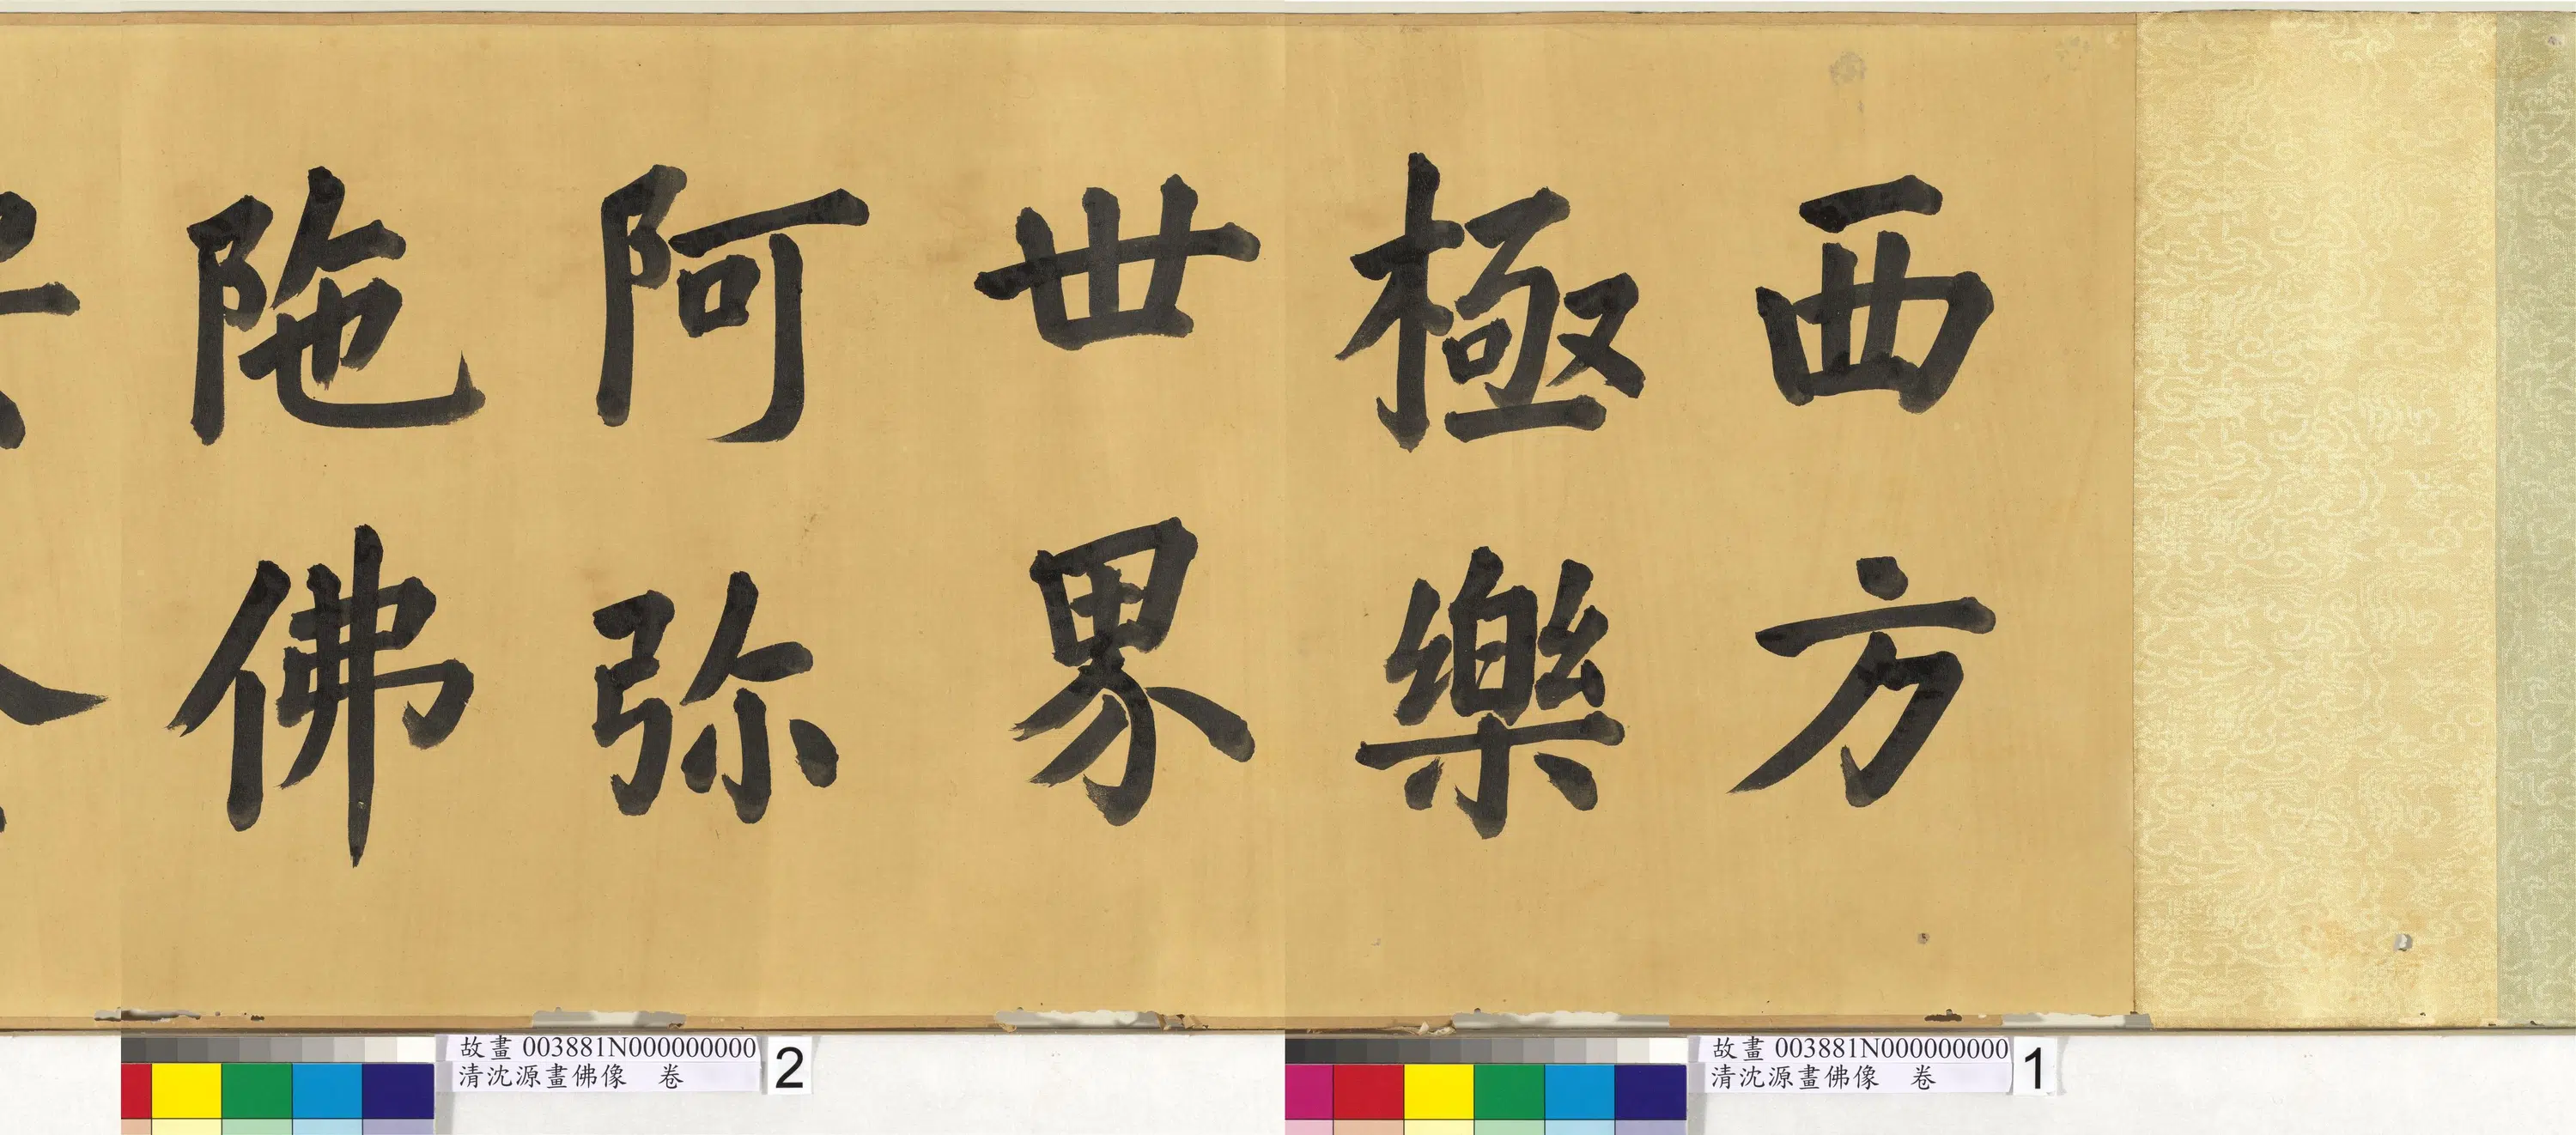 西方
極樂
世界
阿弥
陁佛
故畫 003881N000000000
清沈源畫佛像 卷
1
故畫 003881N000000000
清沈源畫佛像 卷
2